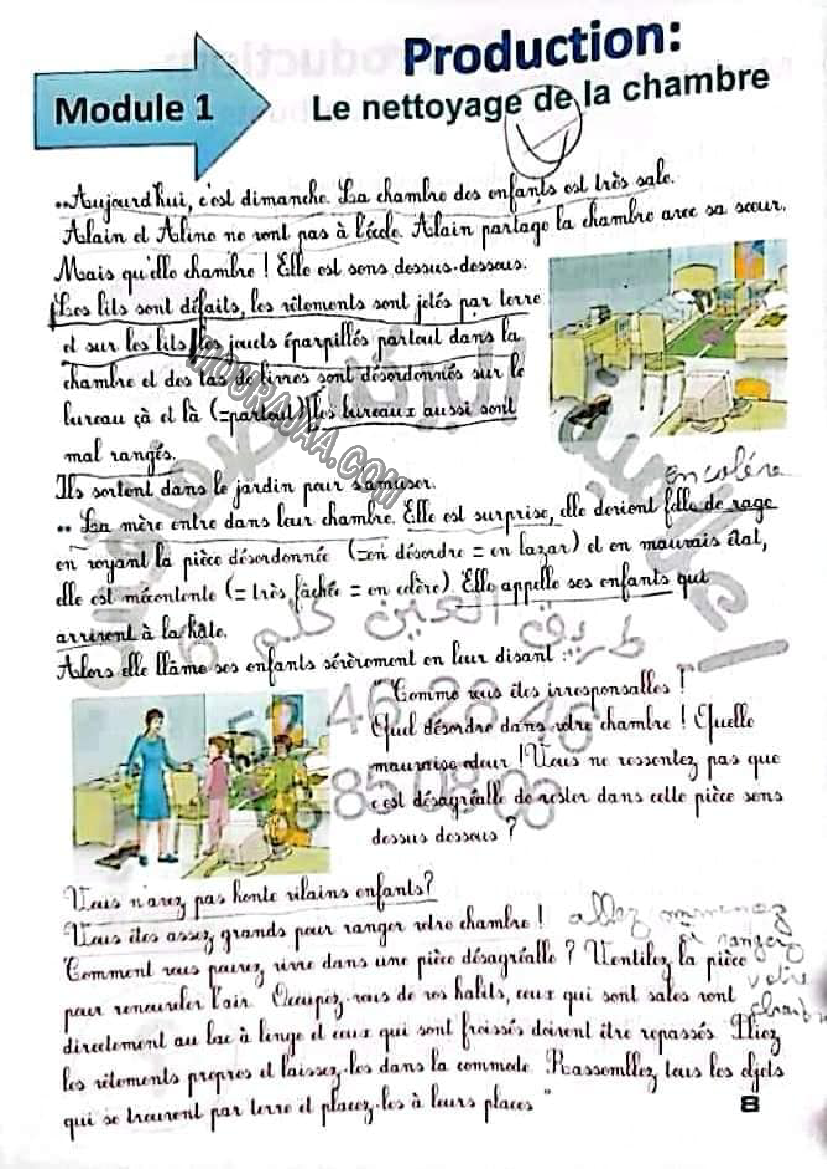 Production:
Module 1
Le nettoyage de la chambre
..Aujourd'hui, c'est dimanche. La chambre des enfants est très sale.
Alain et Aline ne vont pas à l'école. Alain partage la chambre avec sa sœur.
Mais qu'elle chambre ! Elle est sens dessus-dessous.
Les lits sont défaits, les vêtements sont jetés par terre
et sur les lits, les jouets éparpillés partout dans la
chambre et des tas de livres sont désordonnés sur le
bureau çà et là (=partout) les bureaux aussi sont
mal rangés.
MOURAJAA.COM
Ils sortent dans le jardin pour s'amuser.
en colère
.. La mère entre dans leur chambre. Elle est surprise, elle devient folle de rage
en voyant la pièce désordonnée (=en désordre = en bazar) et en mauvais état,
elle est mécontente (= très fâchée = en colère). Elle appelle ses enfants qui
arrivent à la hâte.
طريق العين كلم
Alors elle blâme ses enfants sévèrement en leur disant :
"Comme vous êtes irresponsables !
Quel désordre dans votre chambre ! Quelle
mauvaise odeur ! Vous ne ressentez pas que
c'est désagréable de rester dans cette pièce sens
dessus dessous ?
Vous n'avez pas honte vilains enfants ?
Vous êtes assez grands pour ranger votre chambre !
allez
ranger
votre
Comment vous pouvez vivre dans une pièce désagréable ? Ventilez la pièce
pour renouveler l'air. Occupez-vous de vos habits, ceux qui sont sales vont
directement au bac à linge et ceux qui sont froissés doivent être repassés. Pliez
les vêtements propres et laissez-les dans la commode. Rassemblez tous les objets
qui se trouvent par terre et placez-les à leurs places "
8